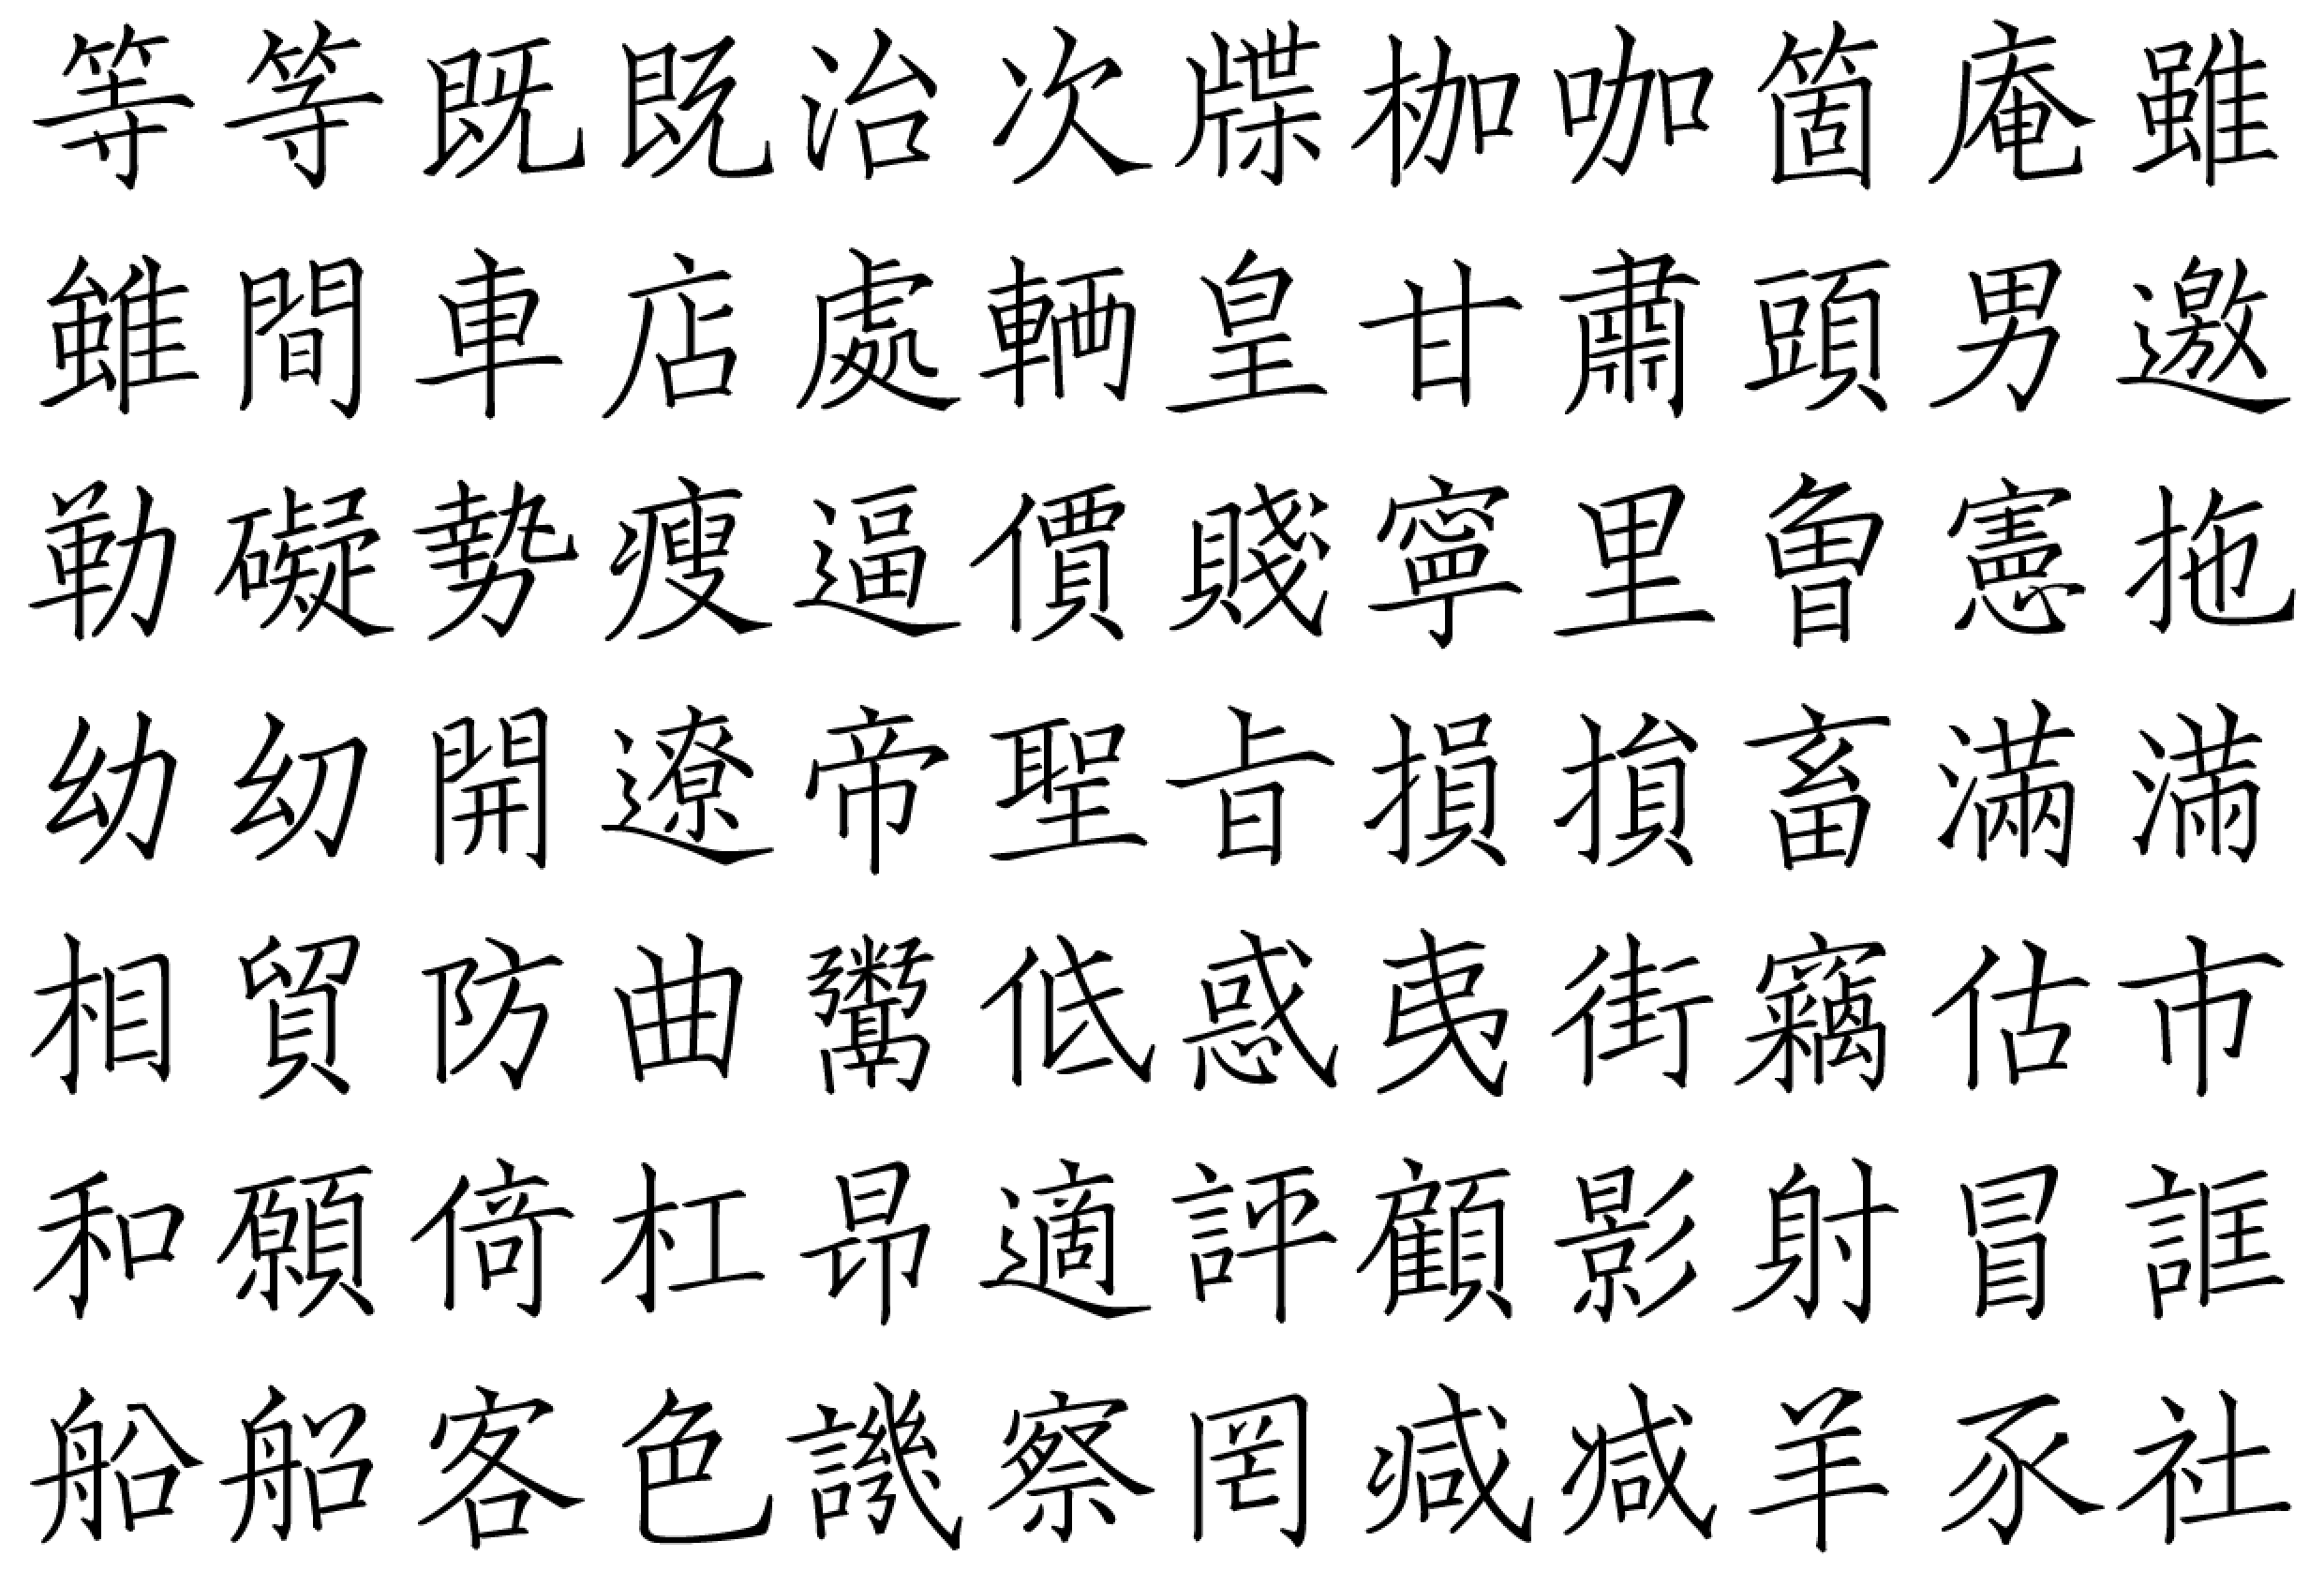 等等既既冶次牒枷咖箇庵雖
雖間車店處輛皇甘肅頭男邀
勒礙勢瘦逼價賤寧里魯憲拖
幼㓜開遼帝聖旨損損畜滿滿
相貿防曲鬻低惑夷街竊估市
和願倚杠昂適評顧影射冒誆
船船客色譏察罔减减羊豕社